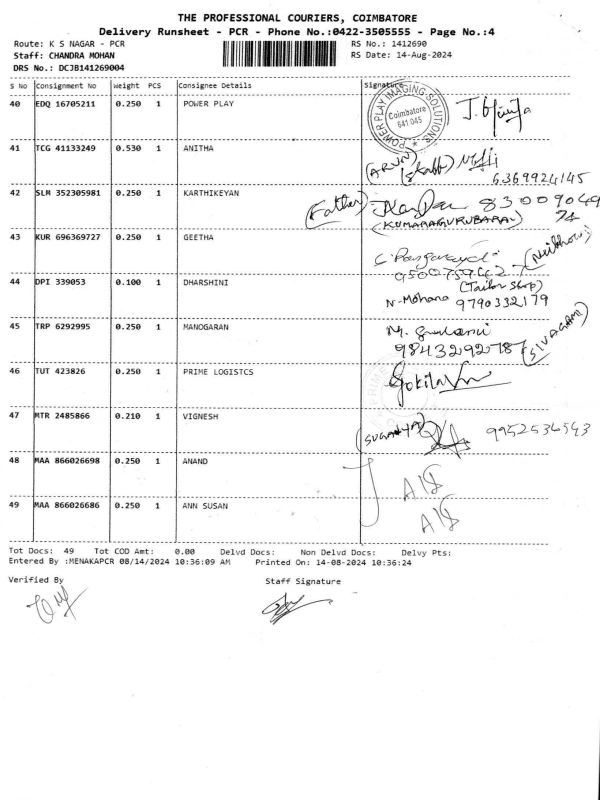 THE PROFESSIONAL COURIERS, COIMBATORE
Delivery Runsheet - PCR - Phone No.:0422-3505555 - Page No.:4
Route: K S NAGAR - PCR RS No.: 1412690
Staff: CHANDRA MOHAN RS Date: 14-Aug-2024
DRS No.: DCJB141269004
S No Consignment No Weight PCS Consignee Details Signature
40 EDQ 16705211 0.250 1 POWER PLAY
POWER PLAY IMAGING SOLUTIONS
Coimbatore
641 045
41 TCG 41133249 0.530 1 ANITHA
(ARUN)
6369924145
42 SLM 352305981 0.250 1 KARTHIKEYAN
(Father) 83009049
74
(KUMARAGURUBARAN)
43 KUR 696369727 0.250 1 GEETHA
44 DPI 339053 0.100 1 DHARSHINI
(Tailor Shop)
N-Mohana 9790332179
45 TRP 6292995 0.250 1 MANOGARAN
(SIVAGAMI)
46 TUT 423826 0.250 1 PRIME LOGISTCS
Gokila
47 MTR 2485866 0.210 1 VIGNESH
(SUGANYA) 9952534543
48 MAA 866026698 0.250 1 ANAND
49 MAA 866026686 0.250 1 ANN SUSAN
Tot Docs: 49 Tot COD Amt: 0.00 Delvd Docs: Non Delvd Docs: Delvy Pts:
Entered By :MENAKAPCR 08/14/2024 10:36:09 AM Printed On: 14-08-2024 10:36:24
Verified By Staff Signature